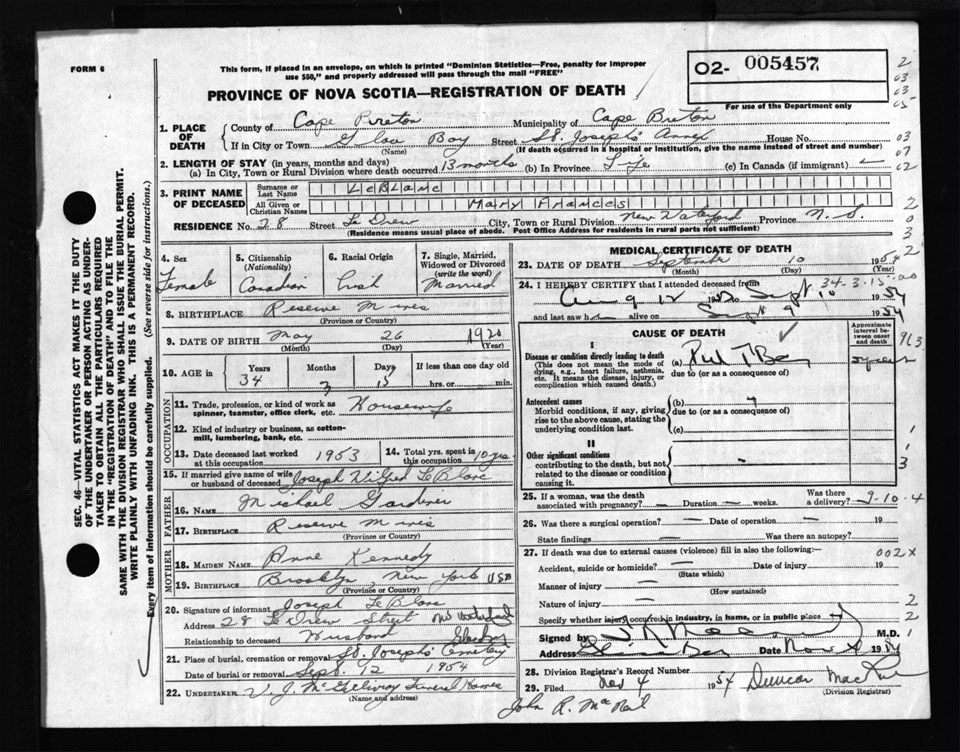 FORM 6
This form, if placed in an envelope, on which is printed "Dominion Statistics—Free, penalty for improper
use $50," and properly addressed will pass through the mail "FREE"
PROVINCE OF NOVA SCOTIA—REGISTRATION OF DEATH
02- 005457
For use of the Department only
2
03
03
05
03
07
02
2
0
3
2
1. PLACE OF DEATH
County of Cape Breton Municipality of Cape Breton
If in City or Town Glace Bay Street St. Joseph's Annex House No.
(Name) (If death occurred in a hospital or institution, give the name instead of street and number)
2. LENGTH OF STAY (in years, months and days)
(a) In City, Town or Rural Division where death occurred 13 months (b) In Province Life (c) In Canada (if immigrant) —
3. PRINT NAME OF DECEASED
Surname or Last Name LeBlanc
All Given or Christian Names Mary Frances
RESIDENCE No. 28 Street La Drew City, Town or Rural Division New Waterford Province N. S.
(Residence means usual place of abode. Post Office Address for residents in rural parts not sufficient)
4. Sex
Female
5. Citizenship
(Nationality)
Canadian
6. Racial Origin
Irish
7. Single, Married, Widowed or Divorced
(write the word)
Married
8. BIRTHPLACE Reserve Mines
(Province or Country)
9. DATE OF BIRTH May 26 1920
(Month) (Day) (Year)
10. AGE in
Years Months Days If less than one day old
34 3 15 hrs. or min.
OCCUPATION
11. Trade, profession, or kind of work as
spinner, teamster, office clerk, etc. Housewife
12. Kind of industry or business, as cotton-
mill, lumbering, bank, etc.
13. Date deceased last worked at this occupation 1953
14. Total yrs. spent in this occupation 10 yrs.
15. If married give name of wife or husband of deceased Joseph Wilfred LeBlanc
FATHER
16. NAME Michael Gardiner
17. BIRTHPLACE Reserve Mines
(Province or Country)
MOTHER
18. MAIDEN NAME Anne Kennedy
19. BIRTHPLACE Brooklyn, New York USA
(Province or Country)
20. Signature of informant Joseph LeBlanc
Address 28 La Drew Street New Waterford
Relationship to deceased Husband
21. Place of burial, cremation or removal St. Joseph's Cemetery
Date of burial or removal Sept. 12 1954
22. UNDERTAKER V. J. McGillivray Funeral Home
(Name and address)
MEDICAL CERTIFICATE OF DEATH
23. DATE OF DEATH September 10 1954
(Month) (Day) (Year)
24. I HEREBY CERTIFY that I attended deceased from 34-3-15
Aug 12 to Sept. 10 1954
and last saw h alive on Sept 9 1954
CAUSE OF DEATH
Approximate interval between onset and death
I
Disease or condition directly leading to death
(This does not mean the mode of dying, e.g., heart failure, asthenia, etc. It means the disease, injury, or complication which caused death.)
(a)
due to (or as a consequence of)
Antecedent causes
Morbid conditions, if any, giving rise to the above cause, stating the underlying condition last.
(b)
due to (or as a consequence of)
(c)
II
Other significant conditions
contributing to the death, but not related to the disease or condition causing it.
1
1
3
25. If a woman, was the death associated with pregnancy? — Duration — weeks. Was there a delivery? 9-10-4
26. Was there a surgical operation? — Date of operation — 19
State findings — Was there an autopsy?
27. If death was due to external causes (violence) fill in also the following:—
002X
Accident, suicide or homicide? — Date of injury 19
(State which)
Manner of injury —
(How sustained)
Nature of injury — 2
Specify whether injury occurred in industry, in home, or in public place 2
Signed by M.D. 1
Address Date Nov 4 1954
28. Division Registrar's Record Number
29. Filed Nov 4 1954 Duncan
(Division Registrar)
John R. MacNeil
SEC. 46—VITAL STATISTICS ACT MAKES IT THE DUTY
OF THE UNDERTAKER OR PERSON ACTING AS UNDER-
TAKER TO OBTAIN ALL THE PARTICULARS REQUIRED
IN THE "REGISTRATION OF DEATH" AND TO FILE THE
SAME WITH THE DIVISION REGISTRAR WHO SHALL ISSUE THE BURIAL PERMIT.
WRITE PLAINLY WITH UNFADING INK. THIS IS A PERMANENT RECORD.
Every item of information should be carefully supplied. (See reverse side for instructions.)